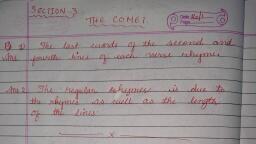 SECTION-3
THE COMET
Date
Page
Q 1) The last words of the second and
Ans fourth lines of each verse rhymes
Ans 2 The regular rhymes is due to
the rhymes as well as the length
of the lines
x